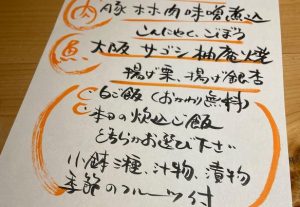 肉 豚ホホ肉味噌煮込
こんにゃく、ごぼう
魚 大阪サゴシ柚庵焼
揚げ栗、揚げ銀杏
白ご飯(おかわり無料)
本日の炊込ご飯
どちらかお選び下さい
小鉢三種、汁物、漬物
季節のフルーツ付